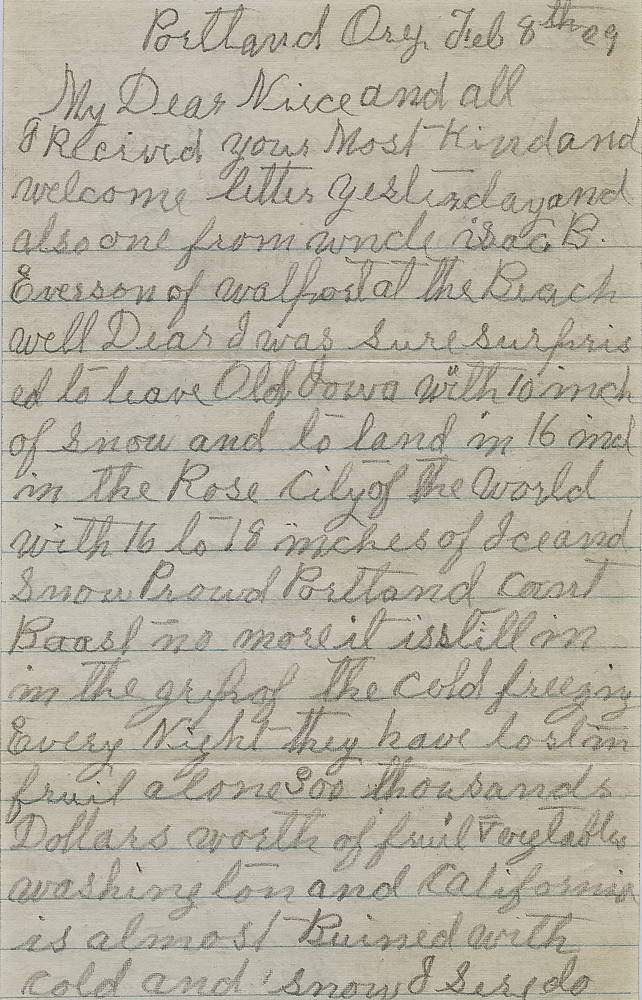 Portland Ory. Feb 8th 29
My Dear Niece and all
I Recived your Most Kind and
welcome letter yesterday and
also one from uncle isac B.
Everson of walport at the Beach
well Dear I was sure surpris
ed to leave Old Iowa with 10 inch
of snow and to land in 16 inch
in the Rose City of the World
with 16 to 18 inches of Ice and
Snow Proud Portland cant
Boast no more it is still in
in the grip of the cold freezing
Every Night they have lost in
fruit alone 300 thousands
Dollars worth of fruit & vegtables
washington and California
is almost Ruined with
cold and snow I Sure do